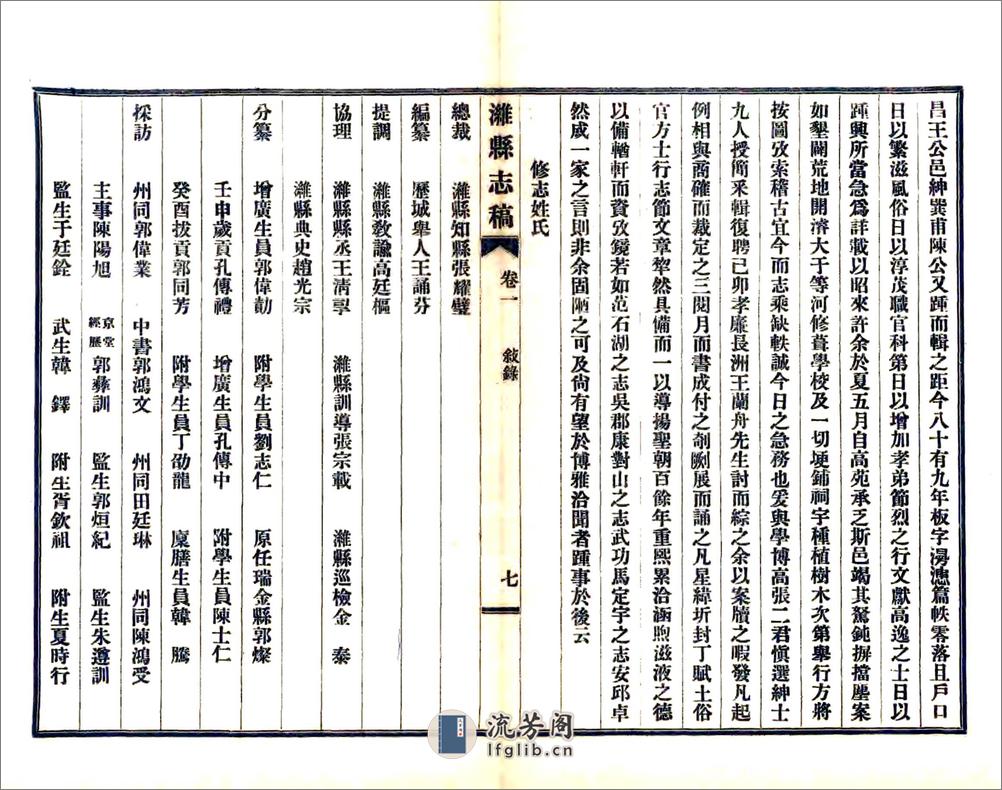 昌王公邑紳巽甫陳公又踵而輯之距今八十有九年板字漫漶篇帙零落且戶口
日以繁滋風俗日以淳茂職官科第日以增加孝弟節烈之行文獻高逸之士日以
踵興所當急爲詳載以昭來許余於夏五月自高苑承乏斯邑竭其駑鈍摒擋塵案
如墾闢荒地開濬大于等河修葺學校及一切埂鋪祠宇種植樹木次第舉行方將
按圖攷索稽古宜今而志乘缺軼誠今日之急務也爰與學博高張二君愼選紳士
九人授簡釆輯復聘己卯孝廉長洲王蘭舟先生討而綜之余以案牘之暇發凡起
例相與商確而裁定之三閱月而書成付之剞劂展而誦之凡星緯圻封丁賦土俗
官方士行志節文章犂然具備而一以導揚聖朝百餘年重熙累洽涵煦滋液之德
以備輶軒而資攷鏡若如范石湖之志吳郡康對山之志武功馬定宇之志安邱卓
然成一家之言則非余固陋之可及尙有望於博雅洽聞者踵事於後云
修志姓氏
濰縣志稿 卷一 敘錄 七
總裁 濰縣知縣張耀璧
編纂 歷城舉人王誦芬
提調 濰縣敎諭高廷樞
協理 濰縣縣丞王淸 濰縣訓導張宗載 濰縣巡檢金 泰
濰縣典史趙光宗
分纂 增廣生員郭偉勣 附學生員劉志仁 原任瑞金縣郭燦
壬申歲貢孔傳禮 增廣生員孔傳中 附學生員陳士仁
癸酉拔貢郭同芳 附學生員丁劭龍 廩膳生員韓 騰
採訪 州同郭偉業 中書郭鴻文 州同田廷琳 州同陳鴻受
主事陳陽旭 京堂經歷郭彝訓 監生郭烜紀 監生朱遵訓
監生于廷銓 武生韓 鐸 附生胥欽祖 附生夏時行
流芳阁
lfglib.cn